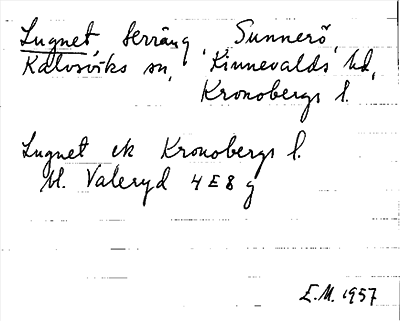 Lugnet, terräng, Sunnerö,
Kalvsviks sn, Kinnevalds hd,
Kronobergs l.
Lugnet ek Kronobergs l.
bl. Väleryd 4 E 8 g
E.M. 1957